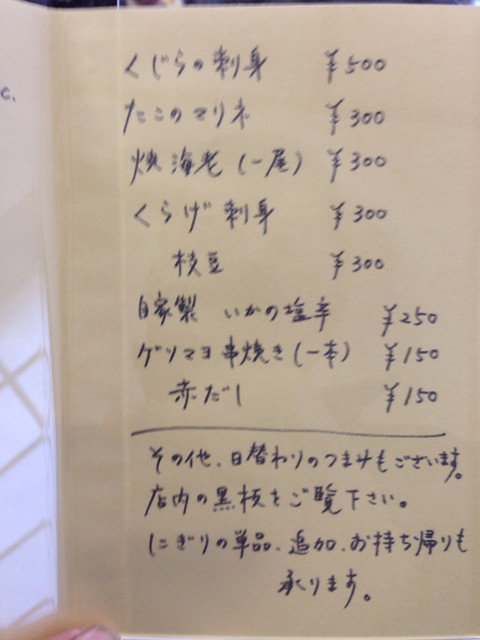 c.
くじらの刺身 ¥500
たこのマリネ ¥300
焼海老(一尾) ¥300
くらげ刺身 ¥300
枝豆 ¥300
自家製 いかの塩辛 ¥250
ゲソマヨ串焼き(一本) ¥150
赤だし ¥150
その他、日替わりのつまみもございます。
店内の黒板をご覧下さい。
にぎりの単品、追加、お持ち帰りも
承ります。